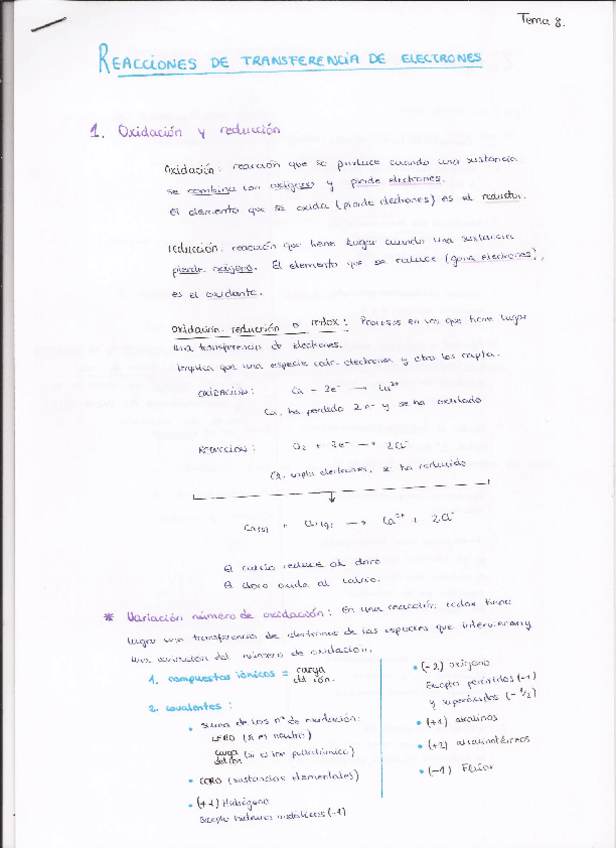 Tema 8.
REACCIONES DE TRANSFERENCIA DE ELECTRONES
1. Oxidación y reducción
Oxidación: reacción que se produce cuando una sustancia
se combina con oxígeno y pierde electrones.
El elemento que se oxida (pierde electrones) es el reductor.
reducción: reacción que tiene lugar cuando una sustancia
pierde oxígeno. El elemento que se reduce (gana electrones),
es el oxidante.
Oxidación-reducción o redox: Procesos en los que tiene lugar
una transferencia de electrones.
Implica que una especie cede electrones y otra los capta.
OXIDACIÓN: Ca - 2e⁻ → Ca²⁺
Ca, ha perdido 2 e⁻ y se ha oxidado
REDUCCIÓN: Cl₂ + 2e⁻ → 2Cl⁻
Cl, capta electrones, se ha reducido
Ca(s) + Cl₂(g) → Ca²⁺ + 2Cl⁻
El calcio reduce al cloro
El cloro oxida al calcio.
* Variación número de oxidación: En una reacción redox tiene
lugar una transferencia de electrones de las especies que intervienen y
una variación del número de oxidación.
1. compuestos iónicos = carga del ion.
2. covalentes:
• Suma de los nº de oxidación:
CERO (si es neutro)
carga del ion (si es ion poliatómico)
• CERO (sustancias elementales)
• (+1) Hidrógeno
Excepto hidruros metálicos (-1)
• (-2) oxígeno
Excepto peróxidos (-1)
y superóxidos (-1/2)
• (+1) alcalinos
• (+2) alcalinotérreos
• (-1) Flúor